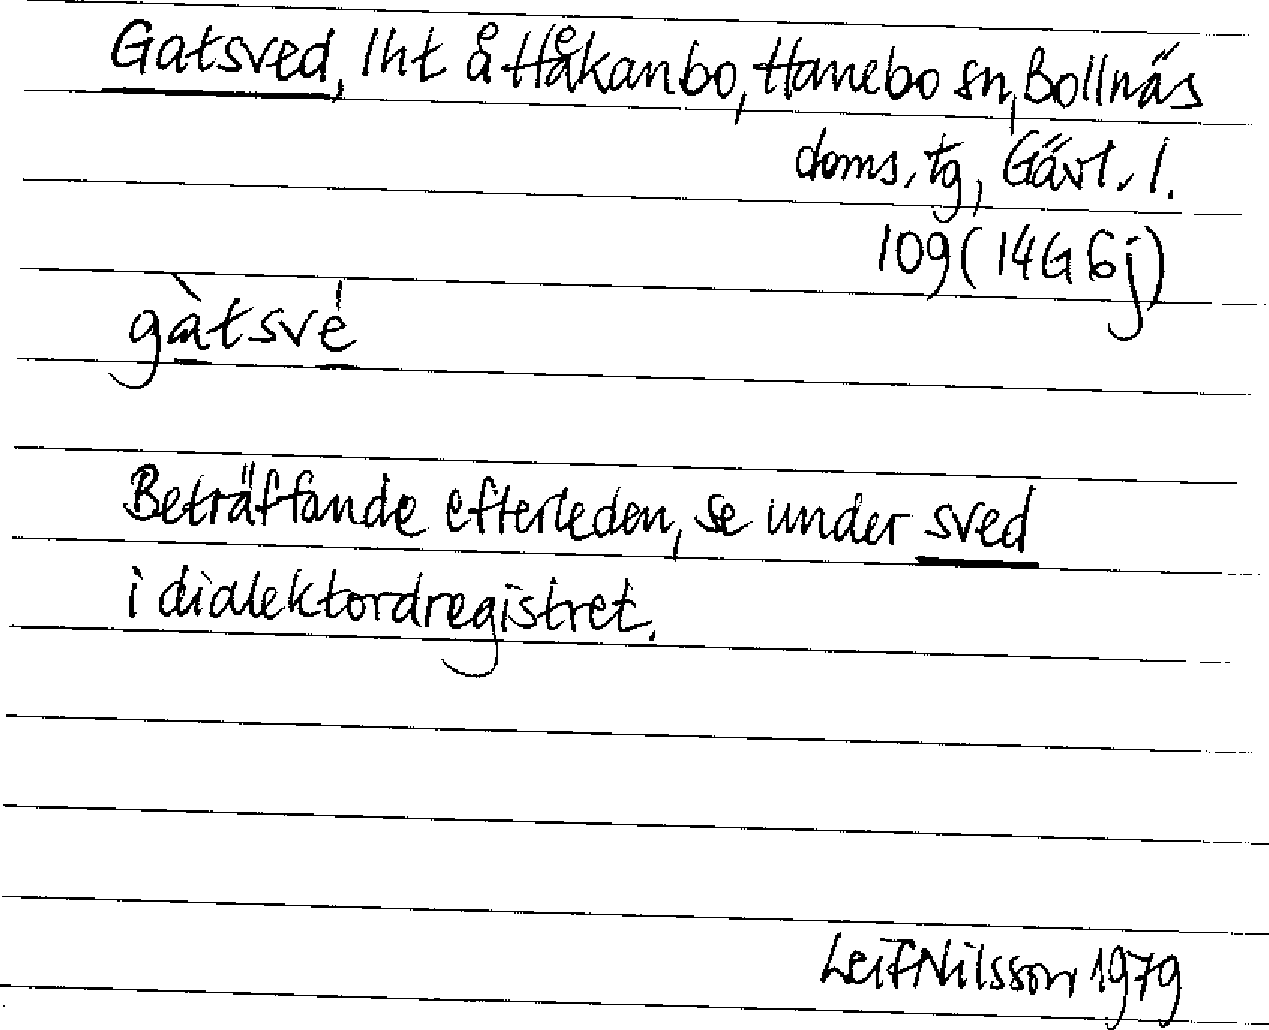 Gatsved, lht å Håkanbo, Hanebo sn, Bollnäs
doms. tg, Gävl. l.
109 (14G 6j)
gàtsvé
Beträffande efterleden, se under sved
i dialektordregistret.
Leif Nilsson 1979